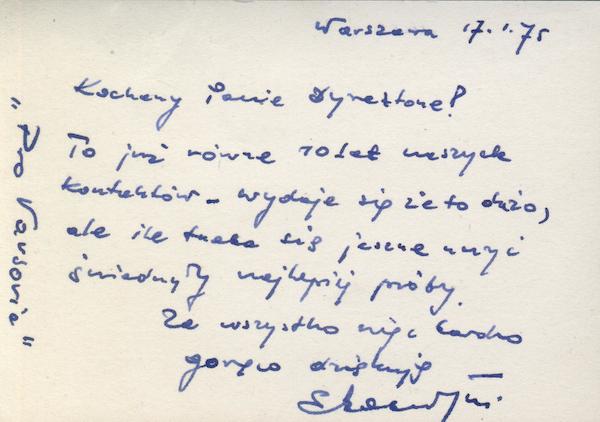 Warszawa 17.1.75
Kochany Panie Dyrektorze!
To już równe 10 lat naszych
kontaktów – wydaje się że to dużo,
ale ile trzeba się jeszcze uczyć
najlepiej próby.
Za wszystko więc bardzo
gorąco dziękuję
"Pro Varsovia"